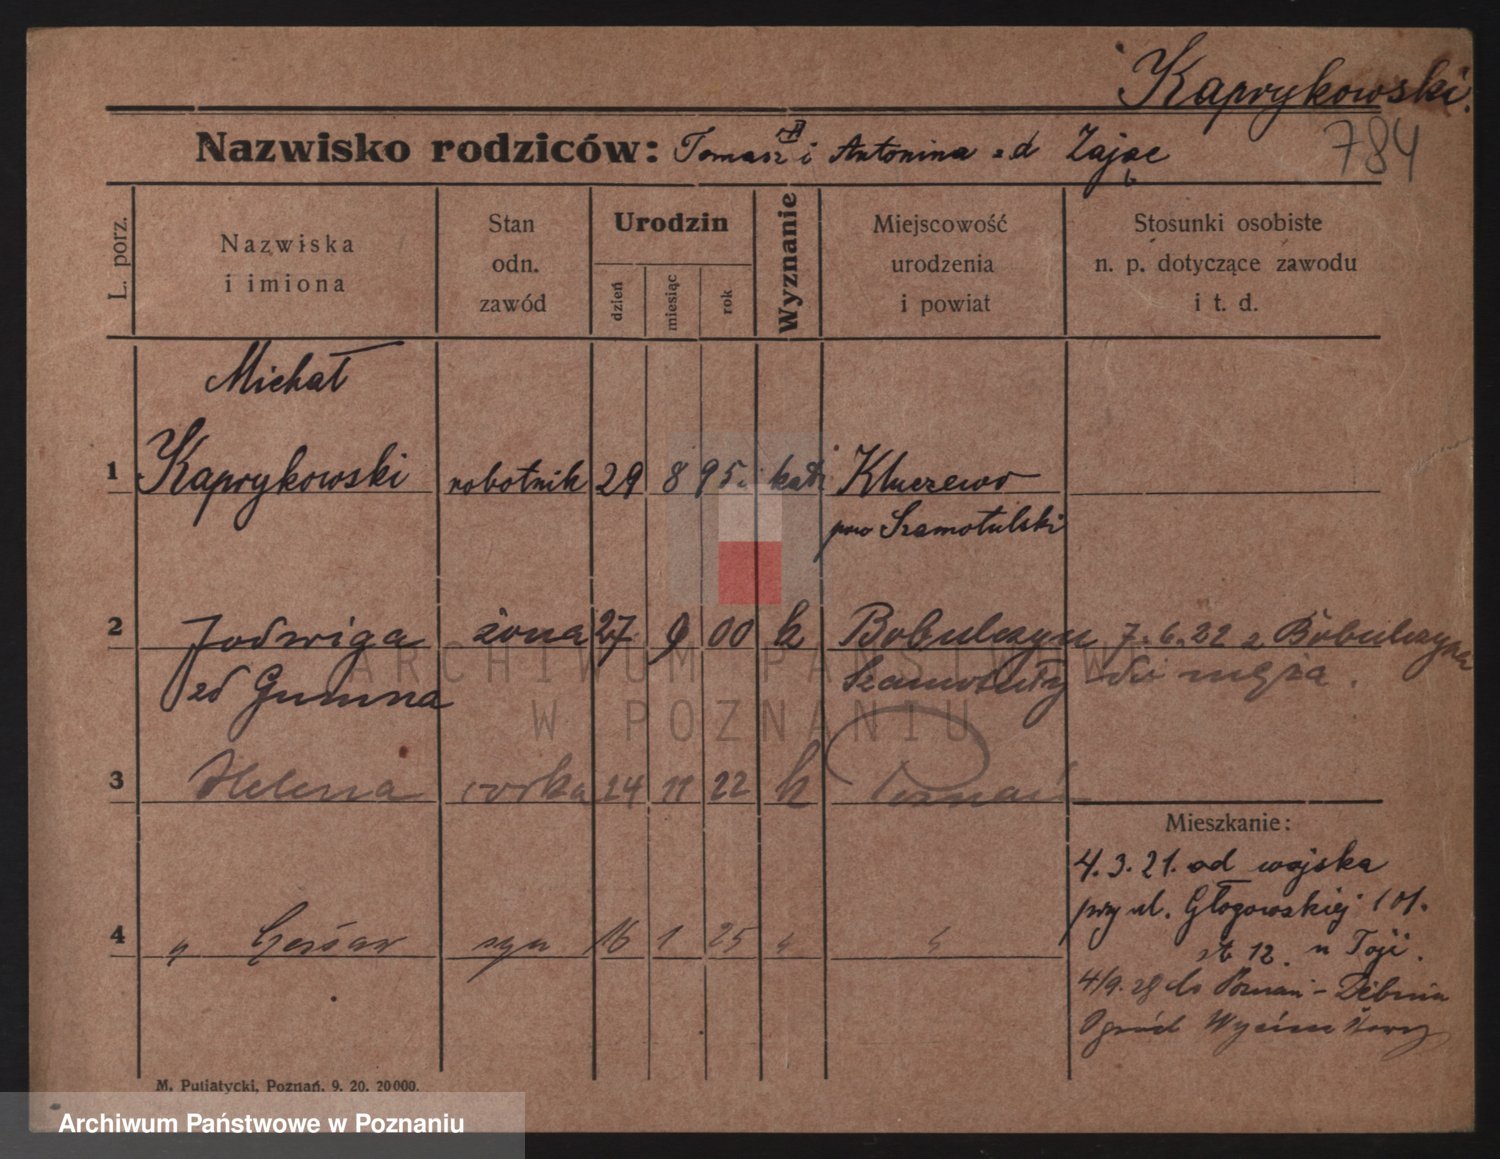 Kaprykowski.
Nazwisko rodziców: Tomasz i Antonina zd Zając
784
L. porz.
Nazwiska
i imiona
Stan
odn.
zawód
Urodzin
dzień
miesiąc
rok
Wyznanie
Miejscowość
urodzenia
i powiat
Stosunki osobiste
n. p. dotyczące zawodu
i t. d.
Michał
1 Kaprykowski robotnik 29 8 95. kat. Kluczewo
pow Szamotulski
2 Jadwiga żona 27 9 00 k Bobulczyn 7.6.22 z Bobulczyna
zd Gumna Szamotuły do męża.
3 Helena córka 24 11 22 k Poznań
Mieszkanie:
4.3.21. od wojska
przy ul. Głogowskiej 101.
4 " Czesław syn 16 1 25 " "
st 12. u
4/9. 28 do Poznań - Dębina
Ogród
M. Putiatycki, Poznań. 9. 20. 20000.
ARCHIWUM PAŃSTWOWE
W POZNANIU
Archiwum Państwowe w Poznaniu